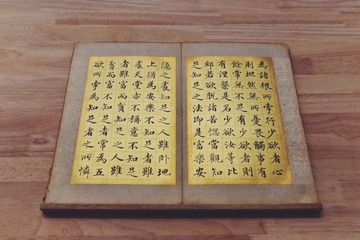 為諸根所牽行少欲者心
則坦然無所憂畏觸事有
餘常無不足有少欲者則
有涅槃是名少欲汝等比
丘若欲脫諸苦惱當觀知
足知足之法即是富樂安
隱之處知足之人雖臥地
上猶為安樂不知足者雖
處天堂亦不稱意不知足
者雖富而貧知足之人雖
貧而富不知足者常為五
欲所牽為知足者之所憐